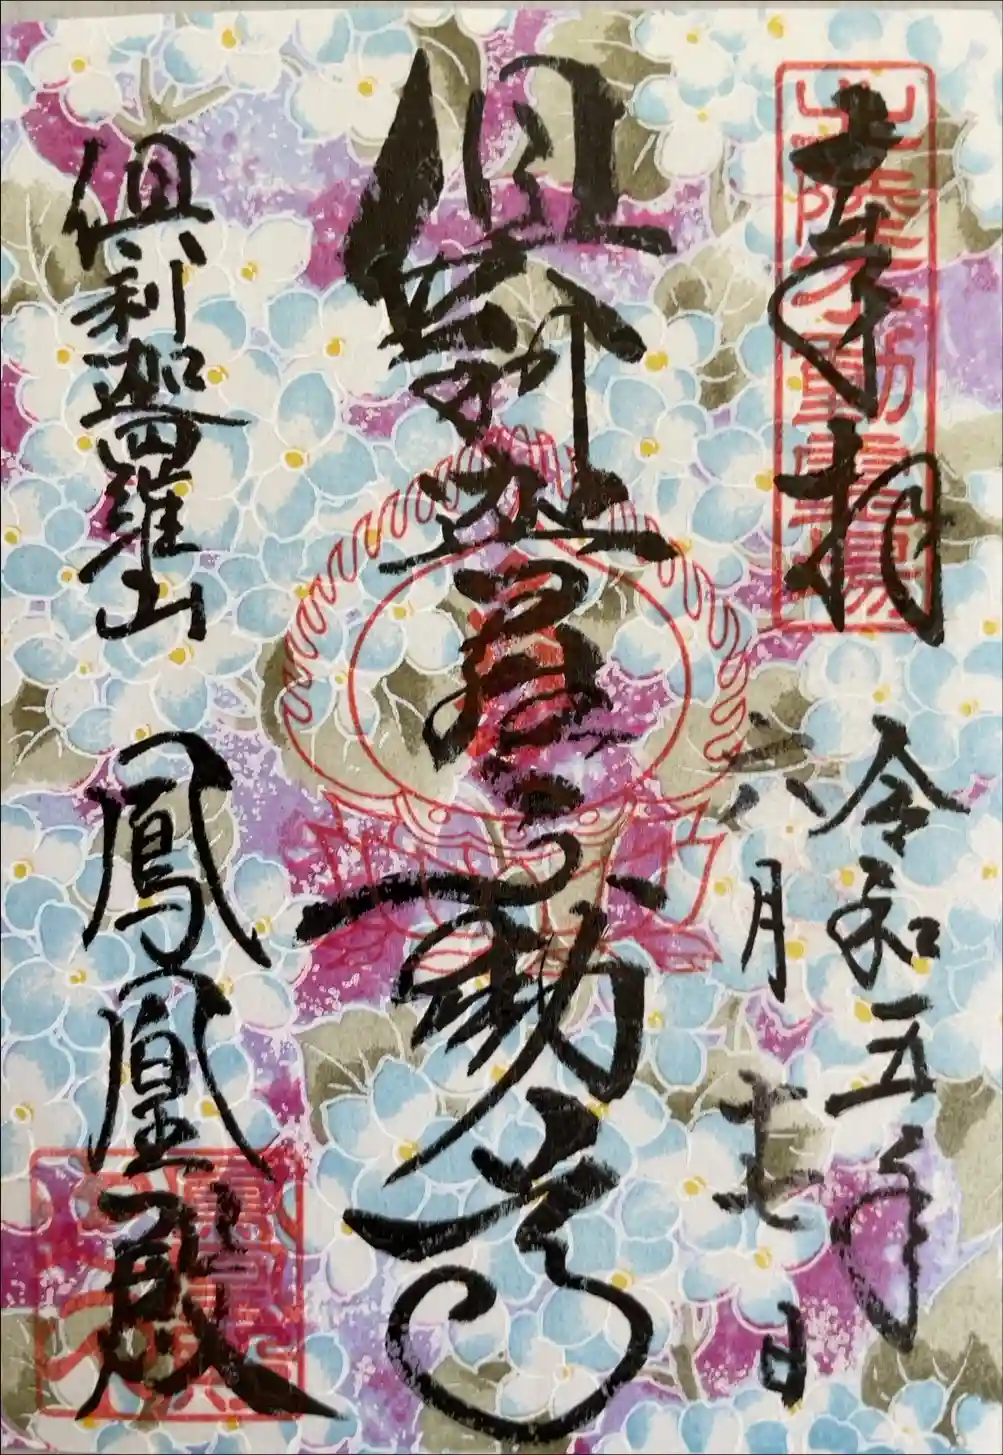 奉拝
北陸不動霊場
令和五年
八月十七日
倶利迦羅不動尊
倶利迦羅山
鳳凰殿